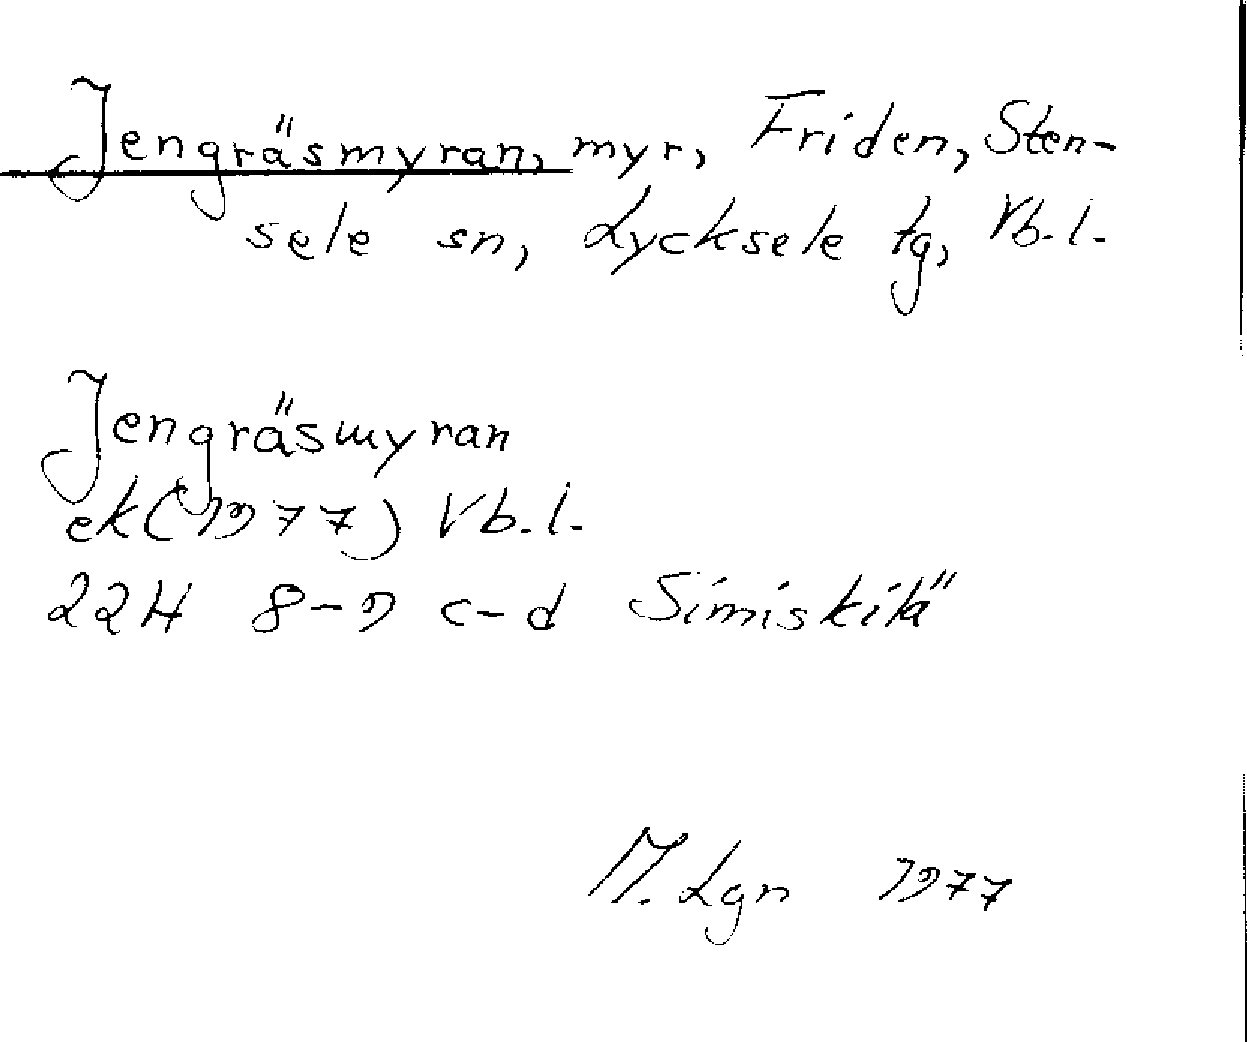 Jengräsmyran, myr, Friden, Sten-
sele sn, Lycksele tg, Vb. l.
Jengräsmyran
ek (1977) Vb. l.
22H 8-9 c-d Simiskilä
M. Lgn 1977